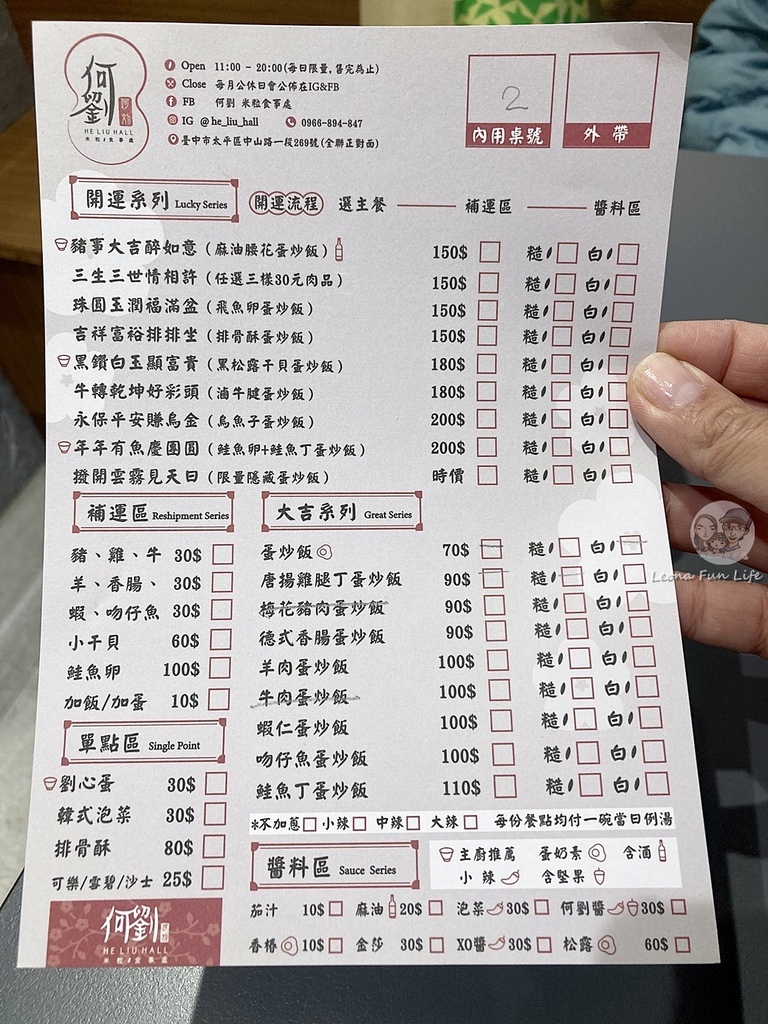 何劉
HE LIU HALL
米粒食事處
Open 11:00 - 20:00(每日限量,售完為止)
Close 每月公休日會公佈在IG&FB
FB 何劉 米粒食事處
IG @he_liu_hall 0966-894-847
臺中市太平區中山路一段269號(全聯正對面)
2
內用桌號 外帶
開運系列 Lucky Series 開運流程 選主餐 補運區 醬料區
豬事大吉醉如意(麻油腰花蛋炒飯) 150$ 糙 白
三生三世情相許(任選三樣30元肉品) 150$ 糙 白
珠圓玉潤福滿盆(飛魚卵蛋炒飯) 150$ 糙 白
吉祥富裕排排坐(排骨酥蛋炒飯) 150$ 糙 白
黑鑽白玉顯富貴(黑松露干貝蛋炒飯) 180$ 糙 白
牛轉乾坤好彩頭(滷牛腱蛋炒飯) 180$ 糙 白
永保平安賺烏金(烏魚子蛋炒飯) 200$ 糙 白
年年有魚慶團圓(鮭魚卵+鮭魚丁蛋炒飯) 200$ 糙 白
撥開雲霧見天日(限量隱藏蛋炒飯) 時價 糙 白
補運區 Reshipment Series
豬、雞、牛 30$
羊、香腸、 30$
蝦、吻仔魚 30$
小干貝 60$
鮭魚卵 100$
加飯/加蛋 10$
單點區 Single Point
劉心蛋 30$
韓式泡菜 30$
排骨酥 80$
可樂/雪碧/沙士 25$
何劉
HE LIU HALL
米粒食事處
大吉系列 Great Series
蛋炒飯 70$ 糙 白
唐揚雞腿丁蛋炒飯 90$ 糙 白
梅花豬肉蛋炒飯 90$ 糙 白
德式香腸蛋炒飯 90$ 糙 白
羊肉蛋炒飯 100$ 糙 白
牛肉蛋炒飯 100$ 糙 白
蝦仁蛋炒飯 100$ 糙 白
吻仔魚蛋炒飯 100$ 糙 白
鮭魚丁蛋炒飯 110$ 糙 白
*不加蔥 小辣 中辣 大辣 每份餐點均付一碗當日例湯
醬料區 Sauce Series
主廚推薦 蛋奶素 含酒
小辣 含堅果
茄汁 10$ 麻油 20$ 泡菜 30$ 何劉醬 30$
香椿 10$ 金莎 30$ XO醬 30$ 松露 60$
Leona Fun Life